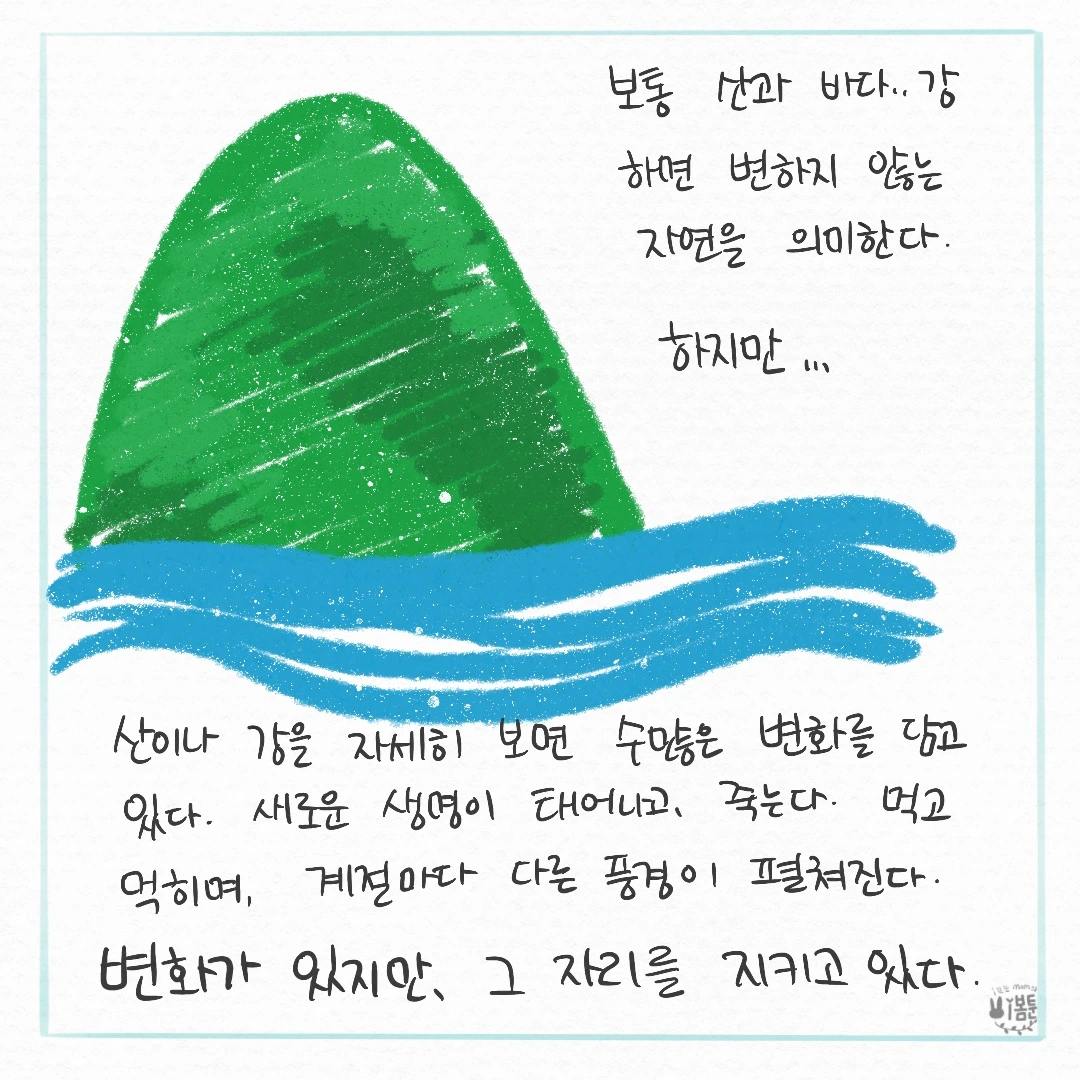 보통 산과 바다.. 강
하면 변하지 않는
자연을 의미한다.
하지만...
산이나 강을 자세히 보면 수많은 변화를 담고
있다. 새로운 생명이 태어나고, 죽는다. 먹고
먹히며, 계절마다 다른 풍경이 펼쳐진다.
변화가 있지만, 그 자리를 지키고 있다.
봄툰